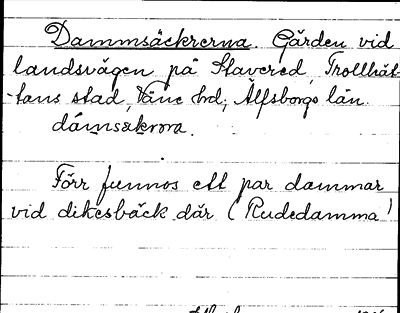 Dammsäckrerna. Gården vid
landsvägen på Stavered, Trollhät-
-tans stad, Väne hd; Älfsborgs län.
dámsækrɷra.
Förr funnos ett par dammar
vid dikesbäck där (Rudedamma)